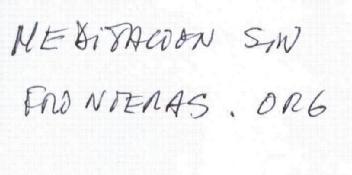 MEDITACION SIN
FRONTERAS. ORG